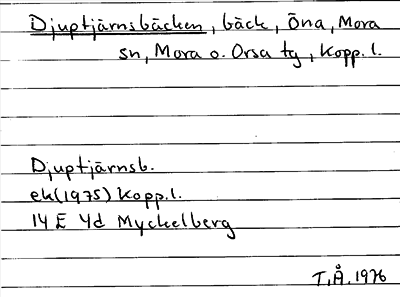 Djuptjärnsbäcken, bäck, Öna, Mora
sn, Mora o. Orsa tg, Kopp. l.
Djuptjärnsb.
ek(1975) Kopp.l.
14 E 4d Myckelberg
T.Å. 1976